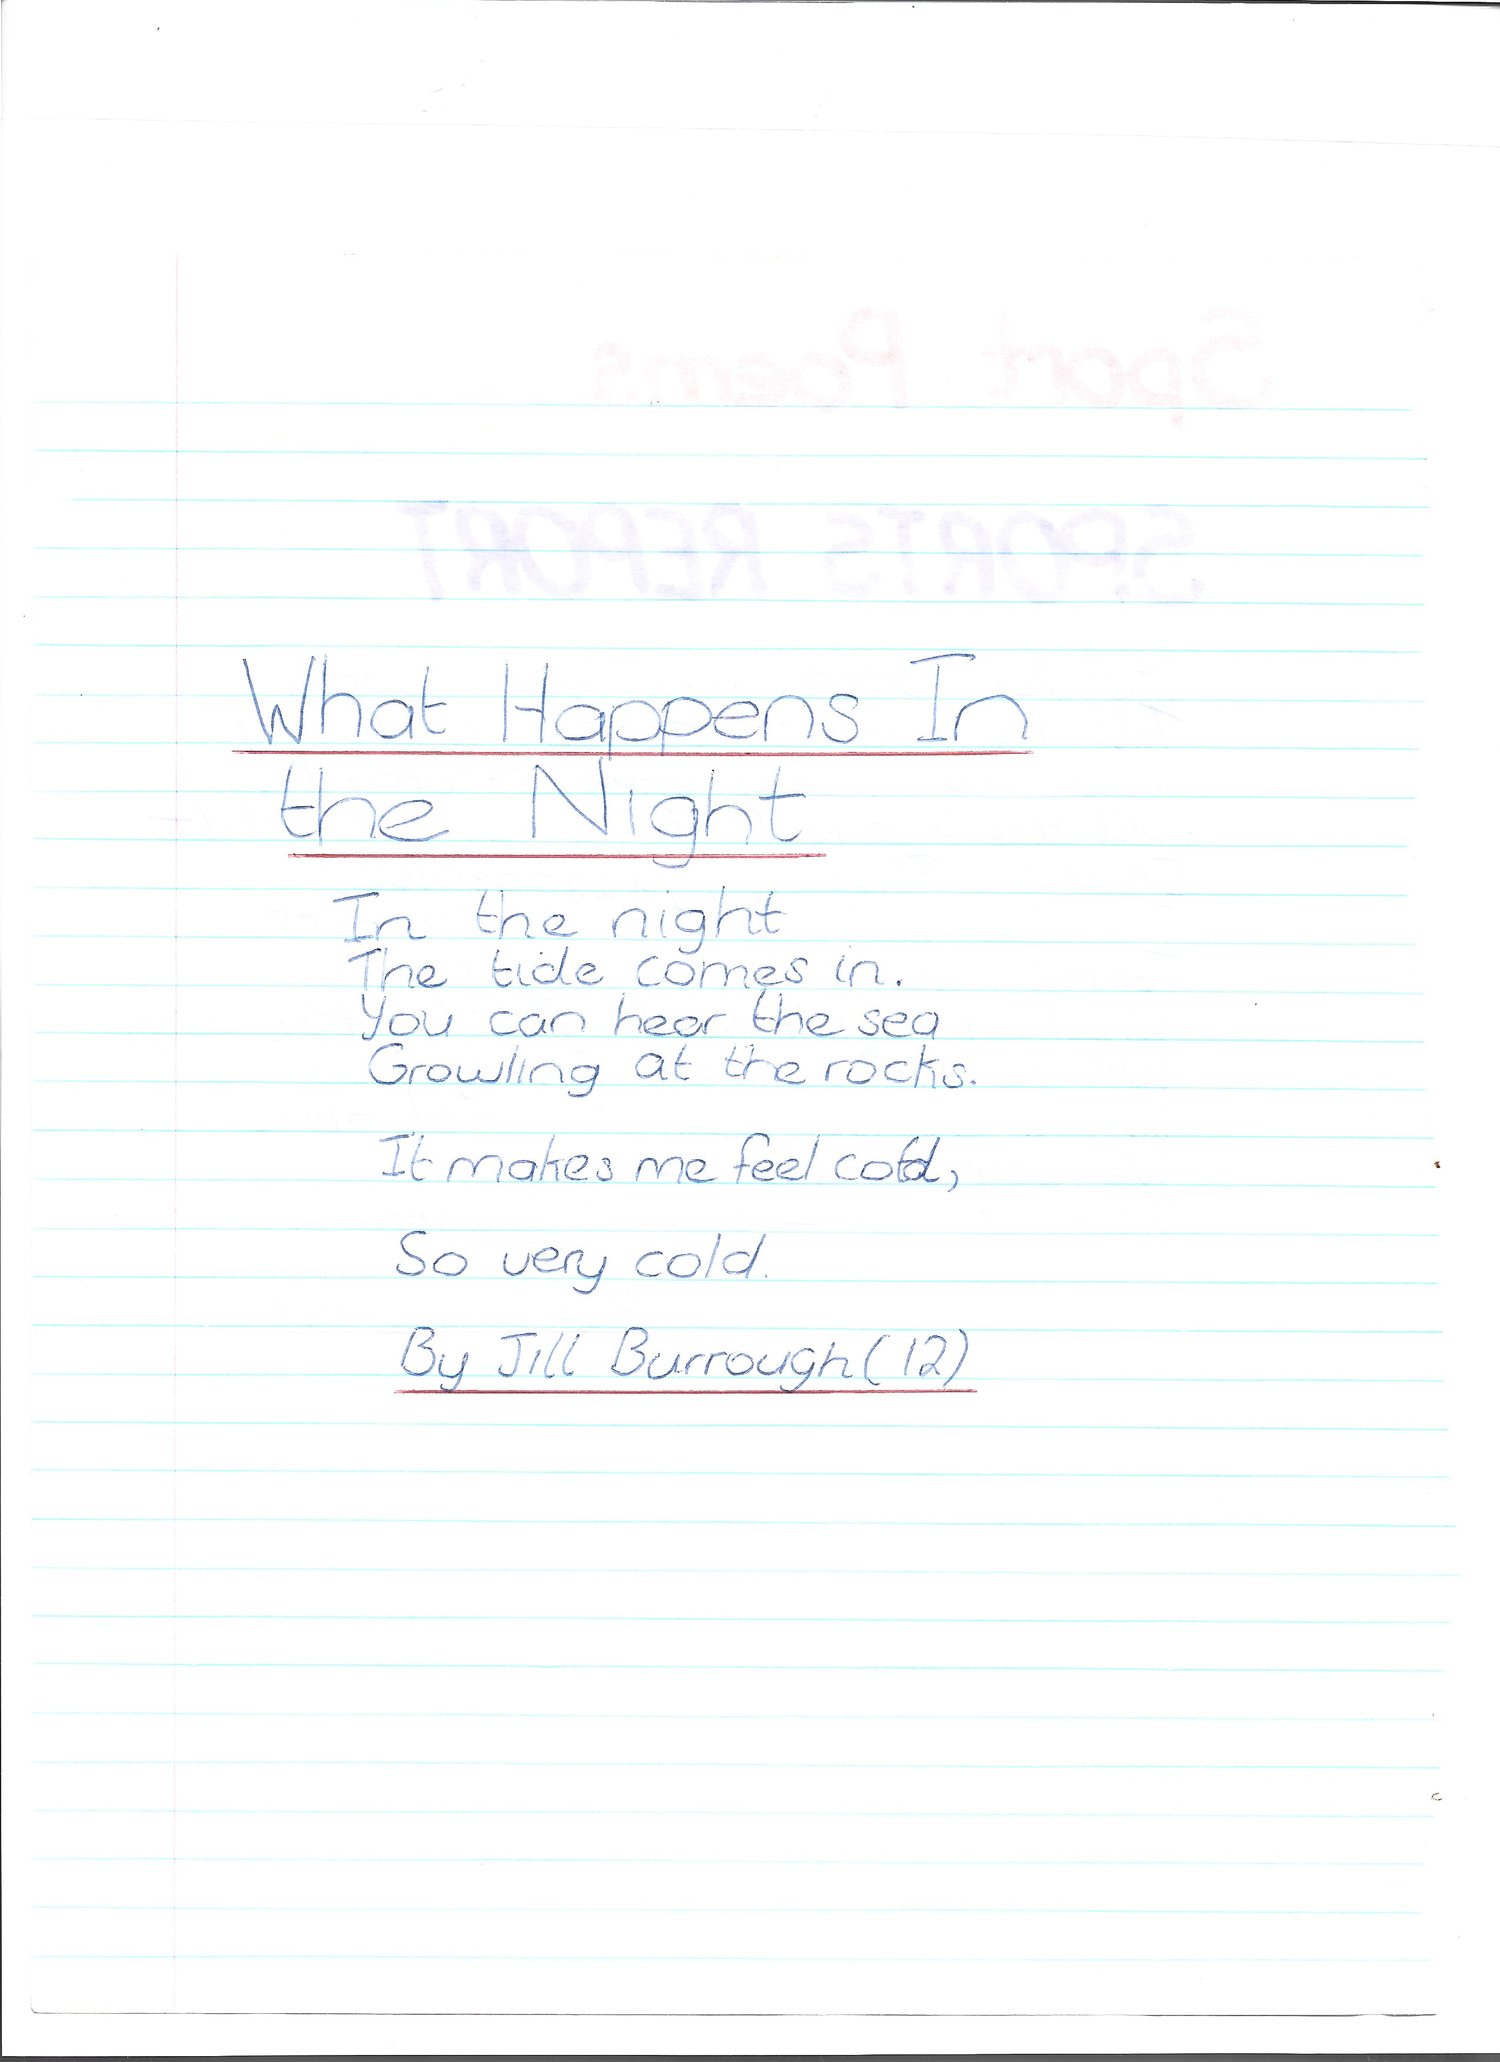 Sport Poems
SPORTS REPORT
What Happens In
the Night
In the night
The tide comes in.
You can hear the sea
Growling at the rocks.
It makes me feel cold,
So very cold.
By Jill Burrough (12)